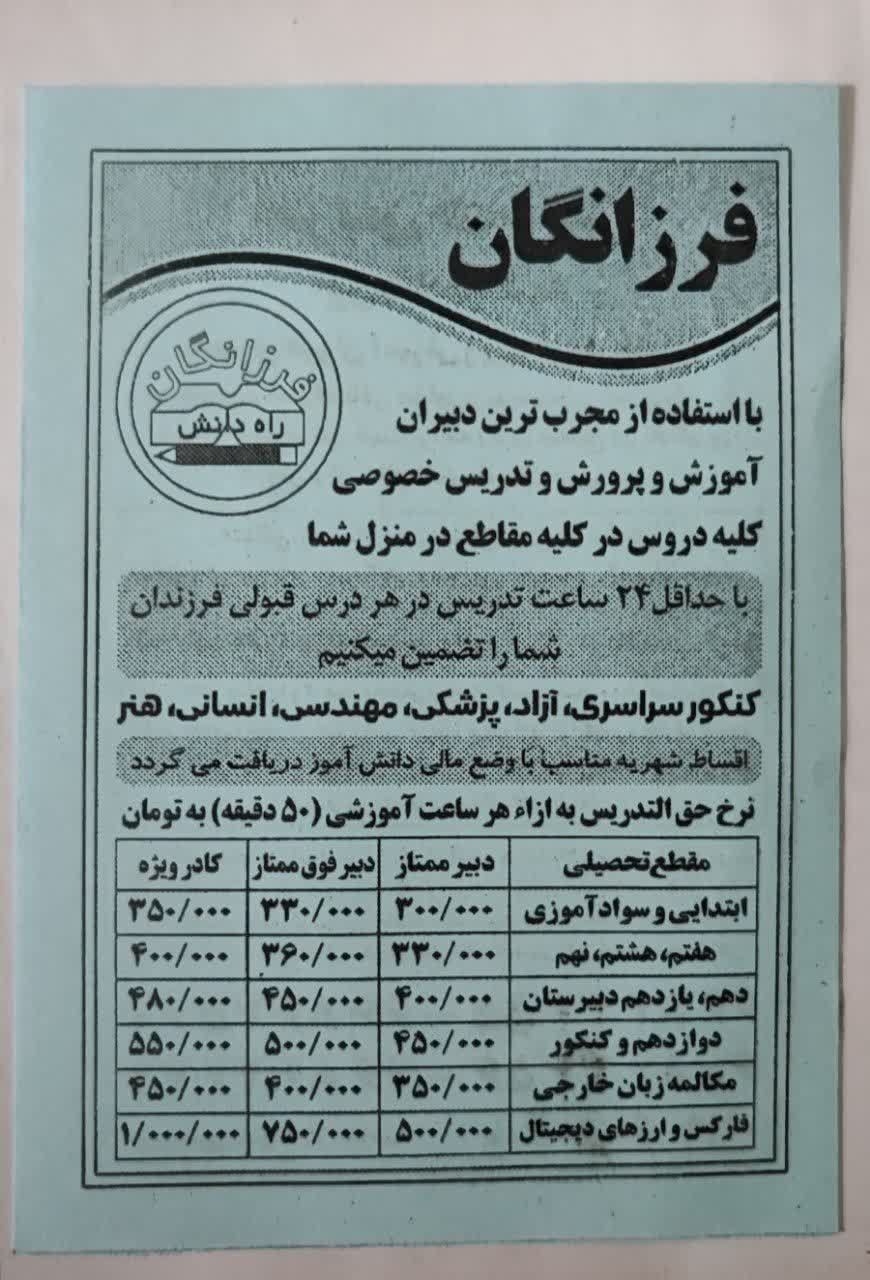 فرزانگان
فرزانگان
راه دانش
با استفاده از مجرب ترین دبیران
آموزش و پرورش و تدریس خصوصی
کلیه دروس در کلیه مقاطع در منزل شما
با حداقل ۲۴ ساعت تدریس در هر درس قبولی فرزندان
شما را تضمین میکنیم
کنکور سراسری، آزاد، پزشکی، مهندسی، انسانی، هنر
اقساط شهریه متناسب با وضع مالی دانش آموز دریافت می گردد
نرخ حق التدریس به ازاء هر ساعت آموزشی (۵۰ دقیقه) به تومان
مقطع تحصیلی دبیر ممتاز دبیر فوق ممتاز کادر ویژه
ابتدایی و سوادآموزی ۳۰۰/۰۰۰ ۳۳۰/۰۰۰ ۳۵۰/۰۰۰
هفتم، هشتم، نهم ۳۳۰/۰۰۰ ۳۶۰/۰۰۰ ۴۰۰/۰۰۰
دهم، یازدهم دبیرستان ۴۰۰/۰۰۰ ۴۵۰/۰۰۰ ۴۸۰/۰۰۰
دوازدهم و کنکور ۴۵۰/۰۰۰ ۵۰۰/۰۰۰ ۵۵۰/۰۰۰
مکالمه زبان خارجی ۳۵۰/۰۰۰ ۴۰۰/۰۰۰ ۴۵۰/۰۰۰
فارکس و ارزهای دیجیتال ۵۰۰/۰۰۰ ۷۵۰/۰۰۰ ۱/۰۰۰/۰۰۰